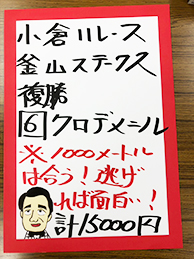 小倉11レース
釜山ステークス
複勝
6 クロデメニル
※1000メートル
は合う!逃げ
れば面白い!
計15000円